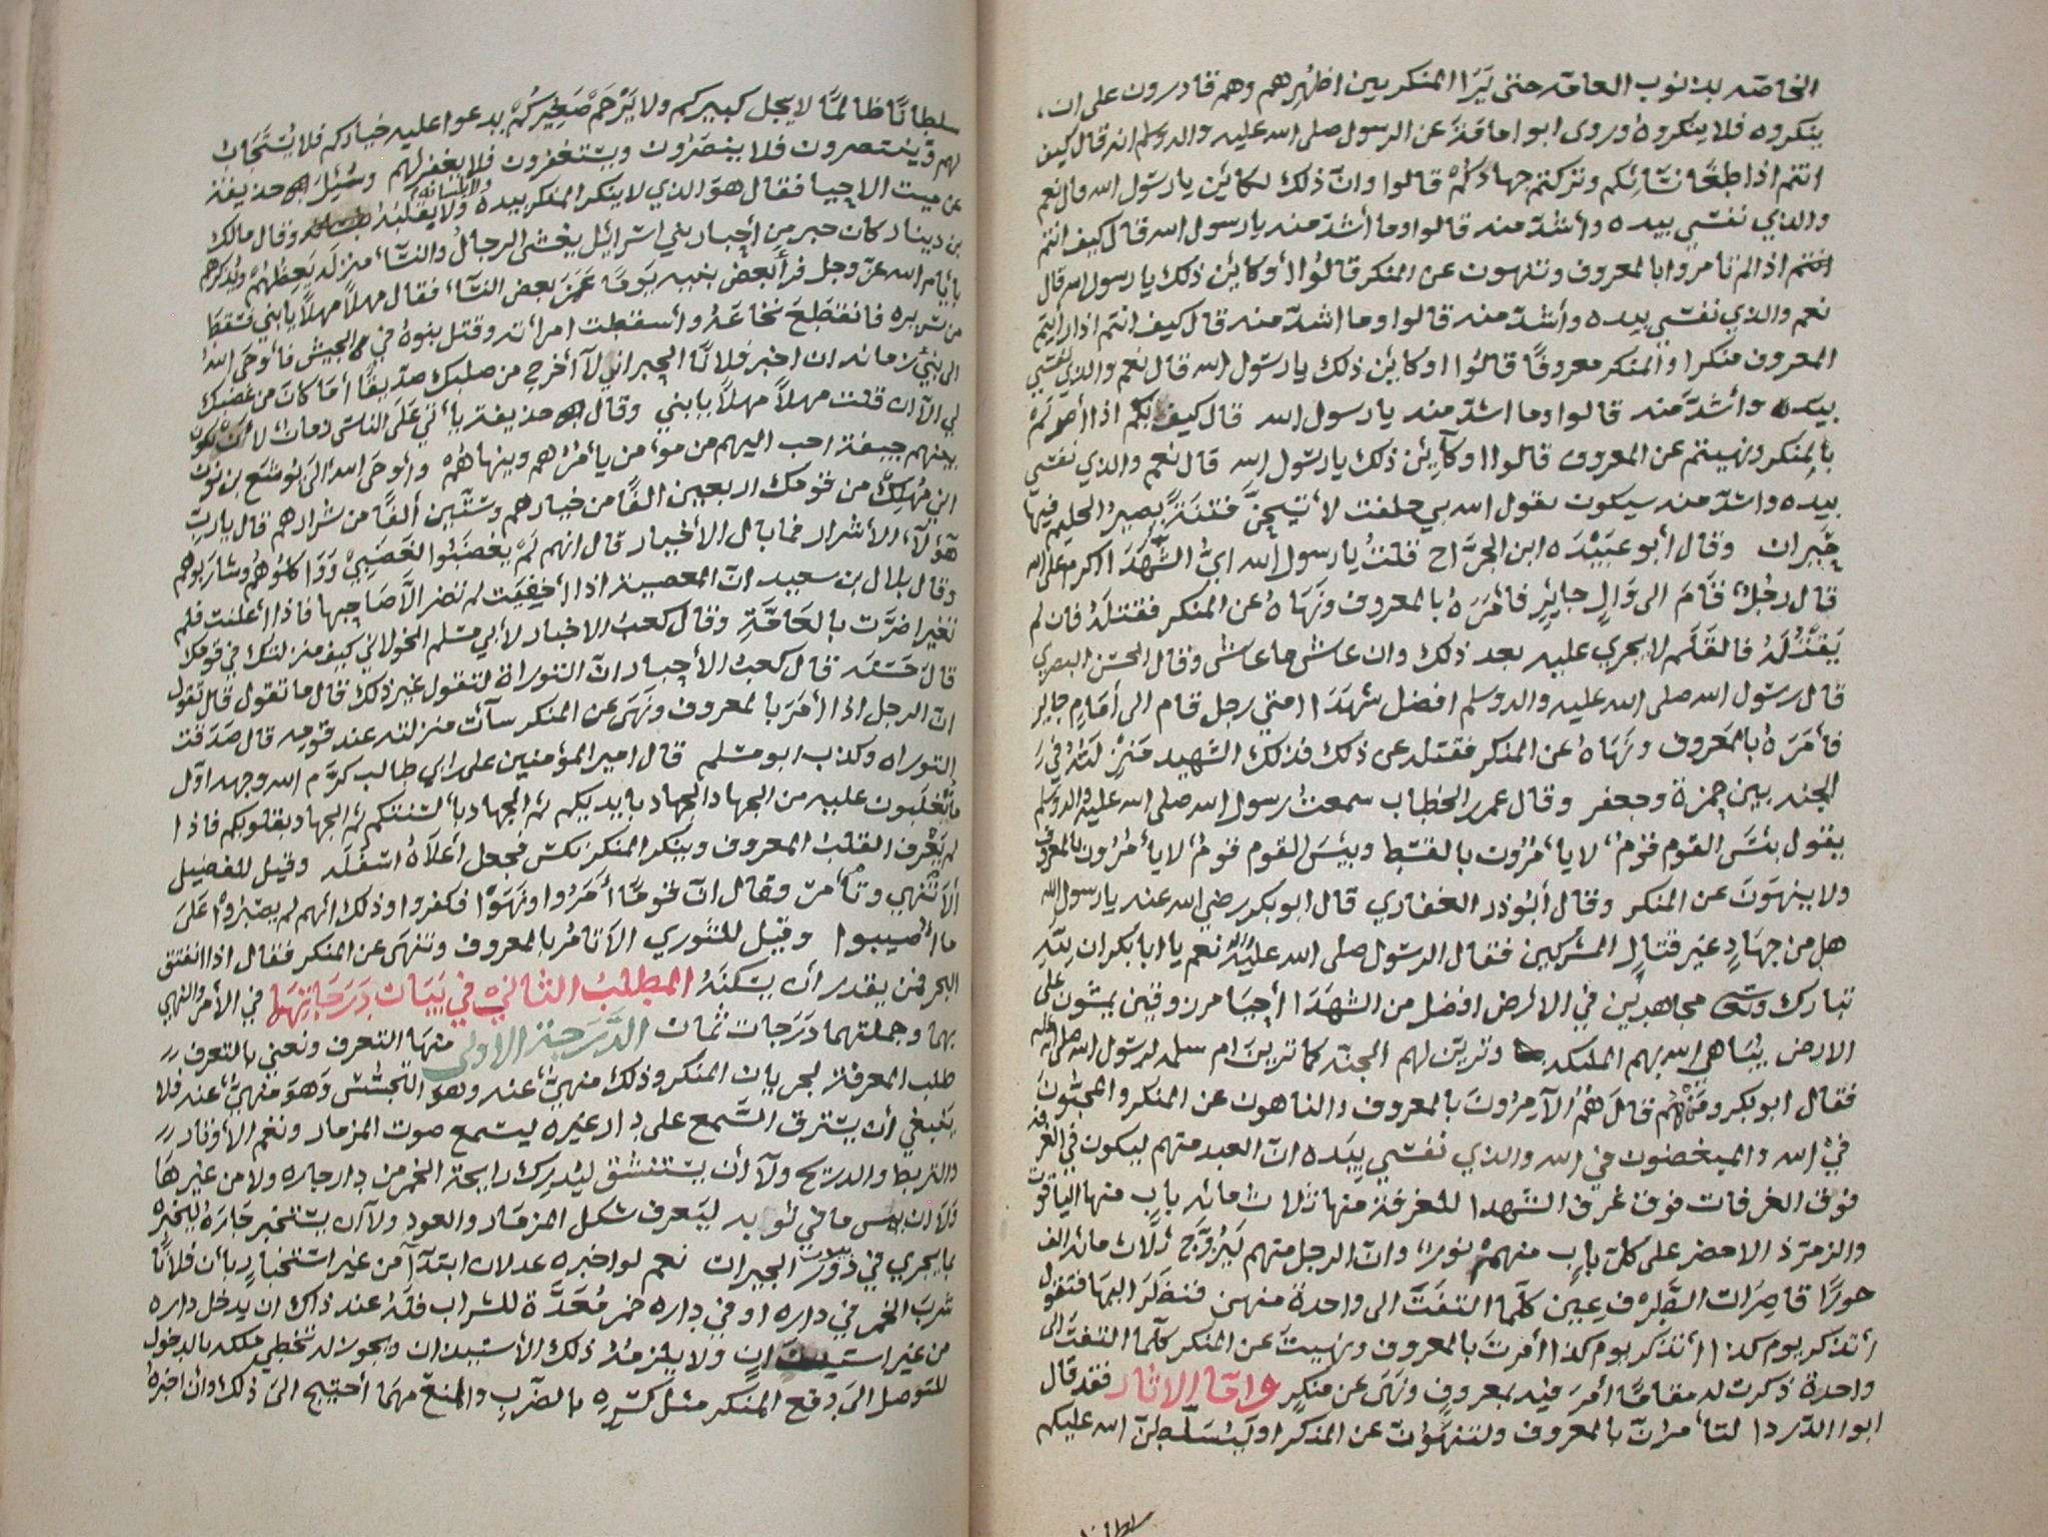 الخاصة بذنوب العامة حتى يَرَا المنكر بين اظهرهم وهم قادرون على ان،
ينكروه فلا ينكروه وروى ابوا مامَة عن الرسول صلى الله عليه واله وسلم انه قال كيف
انتم اذا طغا نسائكم وتركتم جهادكم قالوا وانّ ذلك لكائن يا رسول الله قال نعم
والذي نفسي بيده وأشدّ منه قالوا وما أشدّ منه يا رسول الله قال كيف انتم
انتم اذا لم تامروا بالمعروف وتنهون عن المنكر قالوا أوكائن ذلك يا رسول الله قال
نعم والذي نفسي بيده وأشدّ منه قالوا وما اشدّ منه قال كيف انتم اذا رأيتم
المعروف منكرا والمنكر معروفًا قالوا اوكائن ذلك يا رسول الله قال نعم والذي نفسي
بيده وأشدّ منه قالوا وما اشدّ منه يا رسول الله قال كيف بكم اذا أمرتم
بالمنكر ونهيتم عن المعروف قالوا اوكائن ذلك يا رسول الله قال نعم والذي نفسي
بيده واشدّ منه سيكون يقول الله بي حلفت لأتيحنّ فتنة يصير الحليم فيها
حَيران وقال أبو عبيْدَه ابن الجرّاح قلتُ يا رسول الله ايّ الشّهدَا اكرم على الله
قال رجُلٌ قامَ الى وَالٍ جايرٍ فأمَرَهُ بالمعروف ونَهَاهُ عن المنكر فقتلهُ فان لم
يَقتُلهُ فالقلَم لا يجري عليه بعد ذلك وان عاش ما عاش وقال الحسن البصري
قال رسول الله صلى الله عليه واله وسلم افضل شهدَا امتي رجل قام الى أمَامٍ جاير
فأمَرَهُ بالمَعروف ونَهَاهُ عن المنكر فقتله على ذلك فذلك الشهيد مَنزلتهُ في
الجنه بين حمزة وجعفر وقال عمر الخطاب سمعتُ رسول الله صلى الله عليه واله وسلم
يقول بئسَ القوم قومٌ لا يأمُرُون بالقسط وبيئسَ القوم قومٌ لا يأمُرُون بالمعروف
ولا ينهوَن عن المنكر وقال أبُوذر الغفاري قال ابوبكر رضي الله عنه يا رسول الله
هل من جهَادٍ غير قتالِ المشركين فقال الرسول صلى الله عليه واله نعم يا ابا بكر ان لله
تبارك وتعَٰى مجاهدين في الارض افضل من الشهَدَا أحيَا مرزوقين يمشون على
الارض يُبَاهي الله بهم الملئكه وتزيّن لهم الجنه كما تزينَ ام سلمه لرسول الله صلى الله عليه
فقال ابو بكر ومَن هُم قالَ هُمُ الآمِرُونَ بالمعروف والناهون عن المنكر والمحبّونَ
في الله والمبغضون في الله والذي نفسي بيَده انّ العبد منهم ليكون في الغرفه
فوق الغرفات فوق غرف الشهدا للغرفة منها ثلاث مائه باب منها الياقوت
والزمرّذ الاخضر على كلّ بابٍ منهم نورٌ وانّ الرجل منهم ليُزوَّجَ ثلاث مائه الف
حورَا قاصِرات الطرف عِين كلّما التفتَ الى واحدة منهن فنظر اليها فتقول
أتذكر يوم كذا أتذكر يوم كذا أمَرتَ بالمعروف ونَهيتَ عن المنكر كلّما التفتَ الى
واحدة ذكرت له مقامًا أمَرَ فيه بمعروفٍ ونَهى عن منكرٍ وامّا الاثار فقد قال
ابوا الدّردا لتأمرنّ بالمعروف ولتنهَوُنّ عن المنكر او ليُسَلّطنّ الله عليكم
سلطانًا
سلطانًا ظالمًا لا يجل كبيركم ولا يَرْحَمْ صَغيْركُمْ يدعوا عليه خياركم فلا يُسْتَجَابُ
لهم ويستنصرون فلا ينصَرُون ويستغفرون فلا يغفر لهم وسُئِلَ حذيفة
عن ميت الاحيا فقال هوَ الذي لا ينكر المنكر بيده ولا بلسانه ولا بقلبه وقال مالك
بن دينار كان حبر من أحبار بني اسرائيل يغشى الرجالُ والنسَآء منزله يَعظهُم ويُذكرهم
بأيام الله عزّ وجل فرأى بعض بنيه يَومًا غَمَزَ بعض النسَآء فقال مهلاً مهلاً يا بني فسَقطَ
من سَريره فانقطعَ نخاعَهُ وأسقطت امرأته وقتل بنوهُ في الجيش فأوحَى اللهُ
الى نبيّ زمانه ان اخبر فلانًا الحبر اني لآ أخرج من صلبك صدّيقًا أمَا كانَ من غضبك
لي الآ ان قلتَ مهلاً مهلاً يا بني وقال حذيفة يأتي عَلَى الناس زمانٌ لأن تكون
فيهم جيفة احب اليهم من مؤمن يأمُرُهم وينهاهُم وأوحَى اللهُ الى يُوشَع بن نون
اني مُهلِكٌ من قومك اربعين الفًا من خيارهم وسِتّين ألفًا من شرارهم قال يا ربِ
هَؤلآء الأشرار فما بال الأخيار قال انهم لَمْ يغضَبُوا لغَضَبِي وَوَاكلوهُم وشاربوهم
وقال بلال بن سعيد انّ المعصية اذا أخفيَت لم تضر الآ صَاحِبها فاذا أعلنت فلم
تغيرا ضرّت بالعَامَّةِ وقال كعب الاحبار لأبي مسلم الخولاني كيف منزلتك في قومك
قال حَسَنَه قال كعبُ الأحبار انّ التوراة لتقول غير ذلك قال ما تقول قال تقول
انّ الرجل اذا أمَرَ بالمعروف ونهَى عن المنكر سآئت منزلته عند قومه قال صَدَقت
التوراه وكذب ابو مسلم قال امير المؤمنين على ابي طالب كرّم الله وجهه اوّل
ما تُغلَبون عليه من الجهاد الجهاد بايديكم ثم الجهاد بألسنتكم ثم الجهاد بقلوبكم فاذا
لم يَعْرف القلبُ المعروف وينكر المنكر نكسَ فجعل أعلاهُ اسْفلَه وقيل للفضيل
ألا تنهى وتأمرُ وفقال انّ قومًا أمَرُوا ونهَوْا فكفروا وذلك انهم لم يصبرُوا عَلَى
ما اصيبوا وقيل للثوري الآ تامُر بالمعروف وتنهَى عن المنكر فقال اذا انفتق
البحر فمن يقدر أن يسكنَهُ المطلبُ الثاني في بَيَان دَرَجَاتِهَا في الأمر والنهي
بهما وجملتهما دَرَجات ثمان الدّرَجة الاولى منهَا التعرف ونعني بالتعرف
طلب المعرفة لجريان المنكر وذلك منهيٌّ عنه وهو التجسّس وَهوَ منهيٌّ عنه فلا
ينبغي أن يسترق السَّمع على دار غيره ليسمع صوت المزمار ونغم الأوتار
والتربط والدريج ولا أن يستنشق ليُدرك رايحة الخمر من دار جاره ولا من غيرهَا
ولا ان يمس ما في ثوبه ليَعرف شكل المزمَار والعود ولا أن يستخبر جَارَهُ ليُخبرهُ
بما يجري في دُور الجيران نعم لو اخبره عدلان ابتدآ من غير استخبارٍ بأن فلانًا
شربَ الخمر في داره او في داره خمر مُعَدَّة للشراب فلهُ عند ذاك ان يدخل داره
من غير استيذانٍ ولا يلزمهُ ذلك الأستيذان ويجوز له تخطي ملكه بالدخول
للتوصل الى دفع المنكر مثل كسْرِه بالضرب والمنعْ مهمَا أحتيج الى ذلك وان اخبرهُ